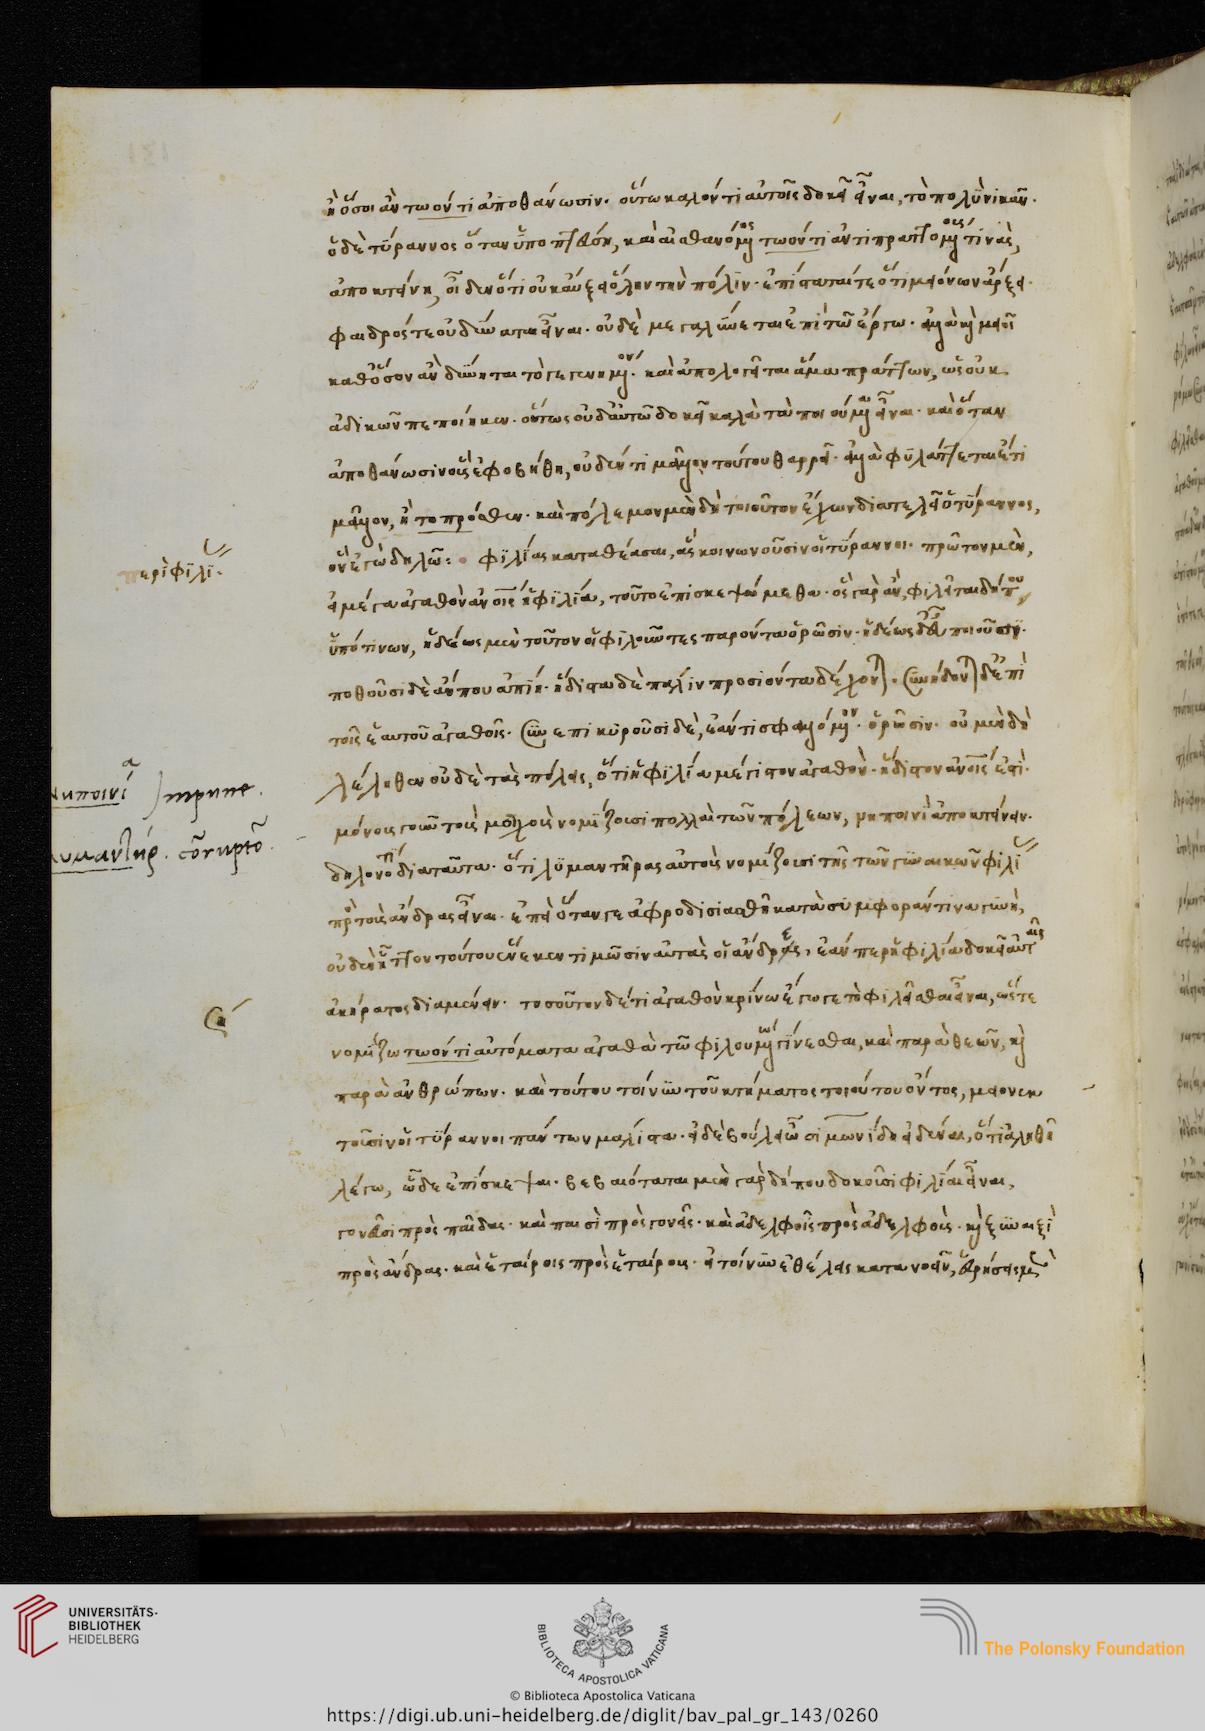 ἢ ὅσοι ἂν τωόντι ἀποθάνωσιν. οὕτω καλόν τι αὐτοῖς δοκεῖ εἶναι, τὸ πολὺ νικᾶν.
ὁ δὲ τύραννος ὅταν ὑποπτεύση, καὶ αἰσθανόμενος τωόντι ἀντιπραττομένους τινὰς,
ἀποκτείνη, οἶδεν ὅτι οὐκ αὔξει ὅλην τὴν πόλιν. ἐπίσταταί τε ὅτι μειόνων ἄρξει.
φαιδρός τε οὐ δύναται εἶναι. οὐδὲ μεγαλύνεται ἐπὶ τῶ ἔργω. ἀλλὰ καὶ μειοῖ
καθόσον ἂν δύνηται τὸ γεγενημένον. καὶ ἀπολογεῖται ἅμα πράττων, ὡς οὐκ
ἀδικῶν πεποίηκεν. οὕτως οὐδ' αὐτῶ δοκεῖ καλὰ τὰ ποιούμενα εἶναι. καὶ ὅταν
ἀποθάνωσιν οὓς ἐφοβήθη, οὐδέν τι μᾶλλον τούτου θαρρεῖ. ἀλλὰ φυλάττεται ἔτι
μᾶλλον, ἢ τοπρόσθεν. καὶ πόλεμον μὲν δὴ τοιοῦτον ἔχων διατελεῖ ὁ τύραννος,
ὃν ἐγὼ δηλῶ: φιλίας καταθέασαι, ἃς κοινωνοῦσιν οἱ τύραννοι. πρῶτον μὲν,
περὶ φιλί
εἰ μέγα ἀγαθὸν ἀνοις ἡ φιλία, τοῦτο ἐπισκεψώμεθα. ὃς γὰρ ἂν, φιλεῖται δήπου
ὑπότινων, ἡδέως μὲν τοῦτον οἱ φιλοῦντες παρόντα ὁρῶσιν. ἡδέως δ' εὖ ποιοῦσιν.
ποθοῦσι δὲ ἄν που ἀπίη. ἥδιστα δὲ πάλιν προσιόντα δέχονται. συνήδονται δ' ἐπὶ
τοῖς ἑαυτοῦ ἀγαθοῖς. συνεπικυροῦσι δὲ, ἐάν τι σφαλλόμενον ὁρῶσιν. οὐ μὲν δὴ
λέληθεν οὐδὲ τὰς πόλεις, ὅτι ἡ φιλία μέγιστον ἀγαθὸν. ἥδιστον ἀνοις ἐστὶ.
νηποινί ) impune.
μόνους γοῦν τοὺς μοιχοὺς νομίζουσι πολλαὶ τῶν πόλεων, νηποινὶ ἀποκτείνειν.
λυμαντήρ. corruptor.
δηλονότι διαταῦτα. ὅτι λυμαντῆρας αὐτοὺς νομίζουσι τῆς τῶν γυναικῶν φιλί
πρὸς τοὺς ἄνδρας εἶναι. ἐπεὶ ὅταν γε ἀφροδισιασθῆ κατὰ συμφοράν τινα γυνὴ,
οὐδὲν ἧττον τούτου ἕνεκεν τιμῶσιν αὐτὰς οἱ ἄνδρες, ἐάν περ ἡ φιλία δοκεῖ αὐταῖς
ἀκήρατος διαμένειν. τοσοῦτον δέ τι ἀγαθὸν κρίνω ἔγωγε τὸ φιλεῖσθαι εἶναι, ὥστε
νομίζω τωόντι αὐτόματα ἀγαθὰ τῶ φιλουμένω γίνεσθαι, καὶ παρὰ θεῶν, καὶ
παρὰ ἀνθρώπων. καὶ τούτου τοίνυν τοῦ κτήματος τοιούτου ὄντος, μειονεκ
τοῦσιν οἱ τύραννοι πάντων μάλιστα. εἰ δὲ βούλει ὦ σιμωνίδη εἰδέναι, ὅτι ἀληθῆ
λέγω, ὧδε ἐπίσκεψαι. βεβαιόταται μὲν γὰρ δήπου δοκοῦσι φιλίαι εἶναι,
γονεῦσι πρὸς παῖδας. καὶ παισὶ πρὸς γονεῖς. καὶ ἀδελφοῖς πρὸς ἀδελφοὺς. καὶ γυναιξὶ
πρὸς ἄνδρας. καὶ ἑταίροις πρὸς ἑταίρους. εἰ τοίνυν ἐθέλεις κατανοεῖν, εὑρήσεις μὲν
UNIVERSITÄTS-
BIBLIOTHEK
HEIDELBERG
BIBLIOTECA APOSTOLICA VATICANA
The Polonsky Foundation
© Biblioteca Apostolica Vaticana
https://digi.ub.uni-heidelberg.de/diglit/bav_pal_gr_143/0260